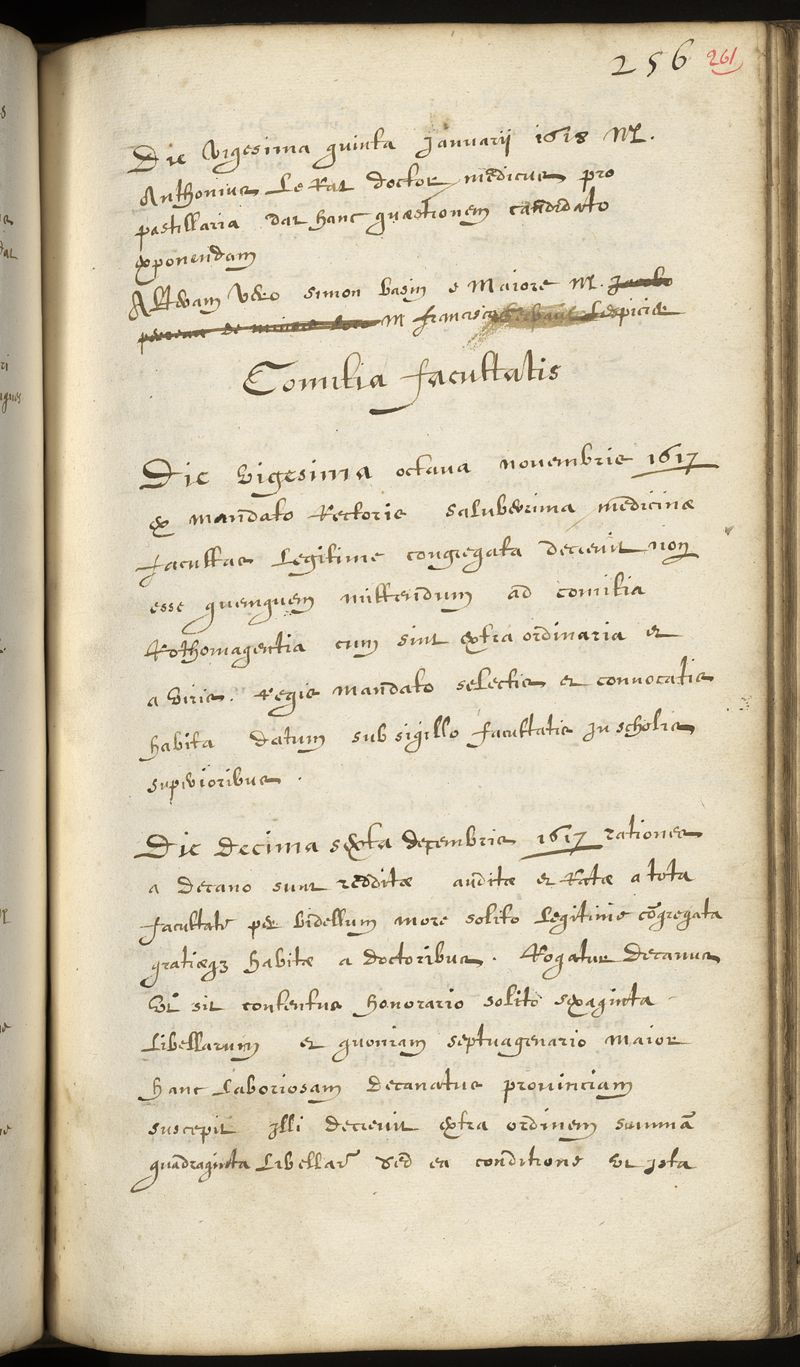 256 261
Die Vigesima quinta Januarij 1618 M.
Anthonius Le Rat doctor medicus pro
pastillaria dat hanc quæstionem candidato
exponendam
Alteram vero simon basin e Maiore M. Jacobo
M francisco Lespicier
Comitia facultatis
Die vigesima octava novembris 1617
ex mandato Rectoris saluberrima medicinæ
facultas Legitime congregata decrevit non
esse quenquem mittendum ad comitia
Rothomagentia cum sint extra ordinaria et
a viris. Regis mandato selectis et convocatis
habita datum sub sigillo facultatis in scholis
superioribus.
Die decima sexta decembris 1617 rationes
a decano sunt redditæ auditæ et Ratæ a tota
facultate per bidellum more solito Legitime cōgregata
gratiæq3 habitæ a doctoribus. Rogatur decanus
vt sit contentus honorario solito sexaginta
Libellarum et quoniam septuagenario maior
hanc Laboriosam decanatus prouinciam
suscepit illi decrevit extra ordinem summā
quadraginta Libellar sed ea conditione vt ista